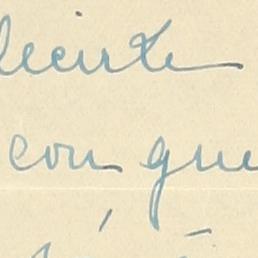 decirte
con que